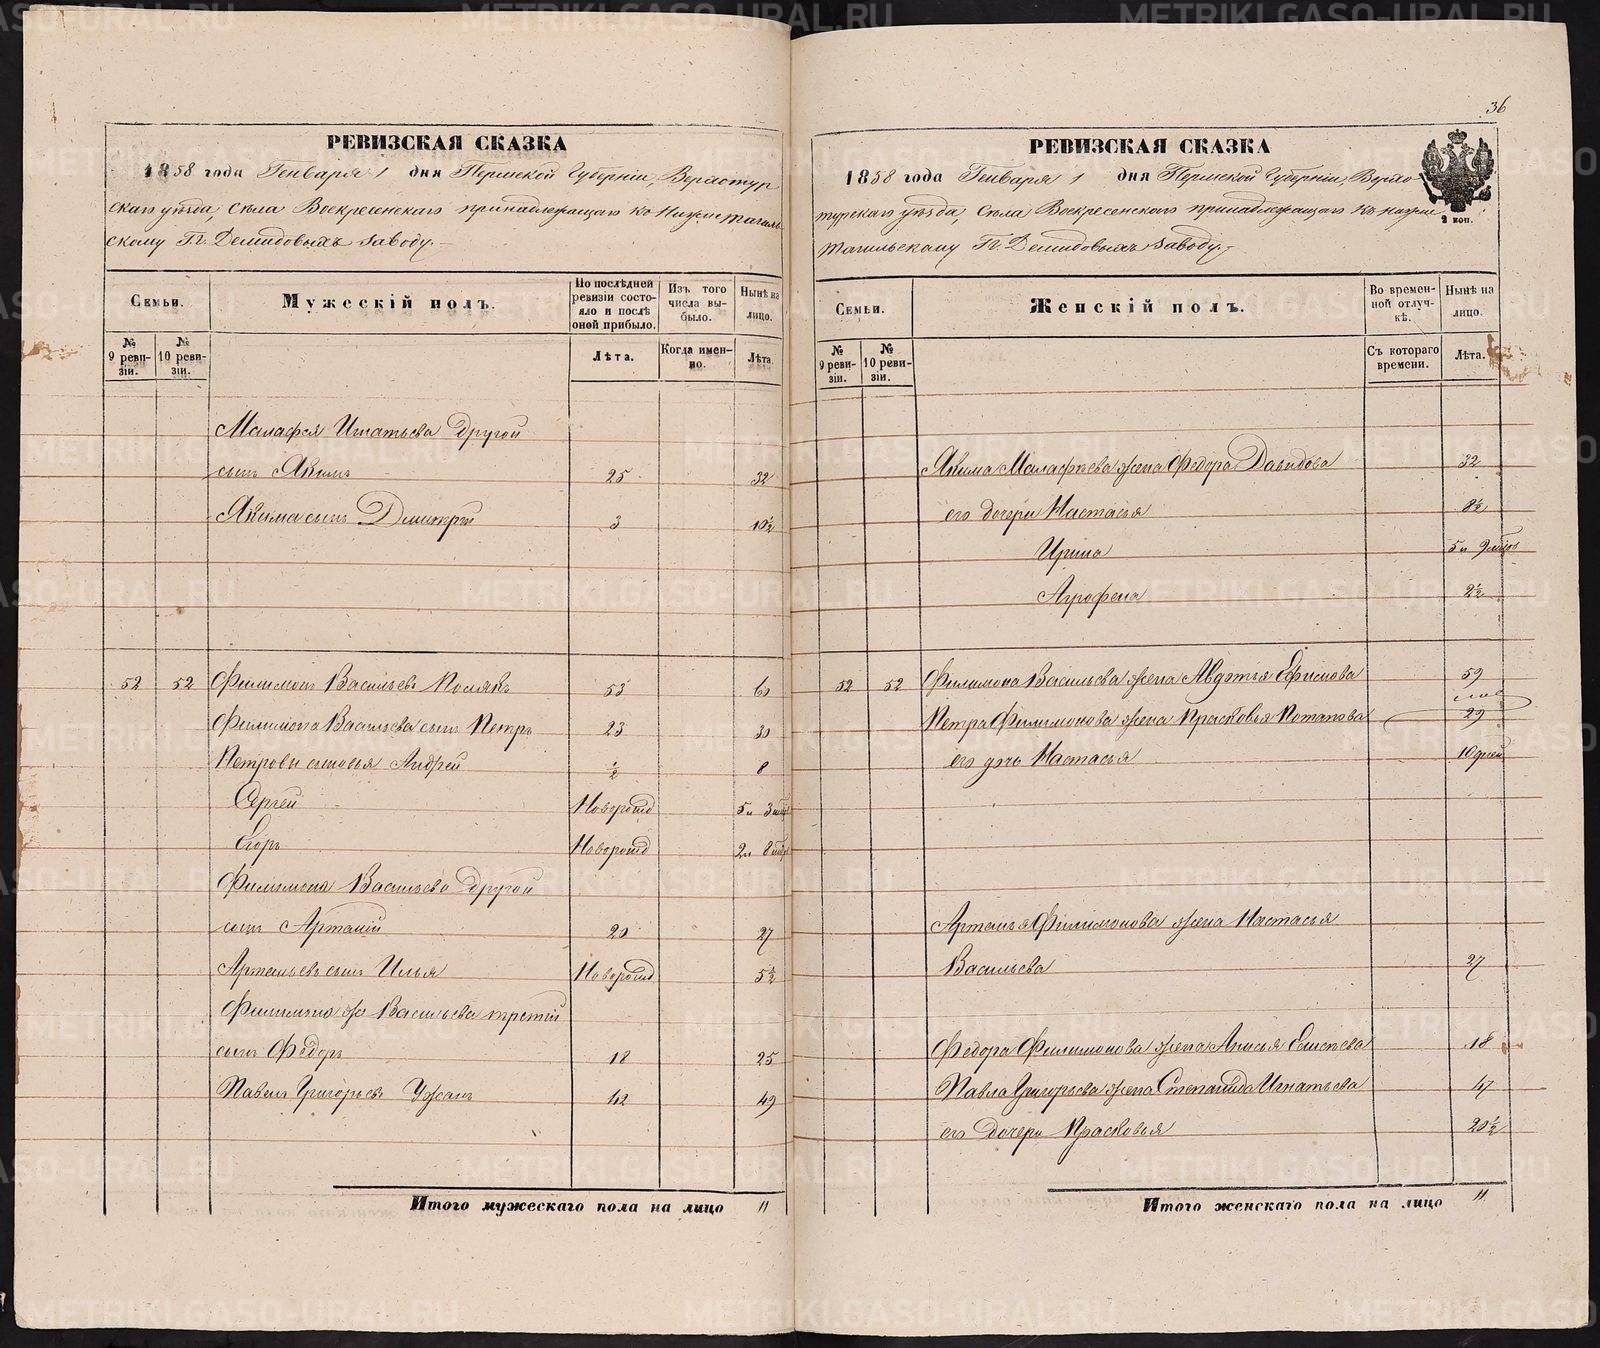 36
РЕВИЗСКАЯ СКАЗКА
1858 года Генваря 1 дня Пермской Губернiи, Верхотур
скаго уѣзда, Села Воскресенскаго принадлежащаго ко Нижнетагиль
скому Гг. Демидовыхъ заводу.
Семьи.
Мужескiй полъ.
По последней ревизiи состояло и послѣ оной прибыло.
Изъ того числа выбыло.
Нынѣ на лицо.
№ 9 ревизiи.
№ 10 ревизiи.
Лѣта.
Когда именно.
Лѣта.
Малафея Игнатьева другой
сынъ Якимъ 25 32
Якима сынъ Дмитрiй 3 10½
52 52 Филимонъ Васильевъ Полякъ 53 60
Филимона Васильева сынъ Петръ 23 30
Петровы сыновья Андрей ½ 8
Сергей Новорожд 5 и 3 мѣс
Егоръ Новорожд 2 и 8 мѣс
Филимона Васильева другой
сынъ Артамiй 20 27
Артемьевъ сынъ Илья Новорожд 5½
Филимона Васильева третiй
сынъ Федоръ 18 25
Павелъ Григорьевъ Ужанъ 42 49
Итого мужескаго пола на лицо 11
РЕВИЗСКАЯ СКАЗКА
2 коп.
1858 года Генваря 1 дня Пермской Губернiи, Верхо
турскаго уѣзда, Села Воскресенскаго принадлежащаго къ Нижне
тагильскому Гг. Демидовыхъ заводу.
Семьи.
Женскiй полъ.
Во временной отлучкѣ.
Нынѣ на лицо.
№ 9 ревизiи.
№ 10 ревизiи.
Съ котораго времени.
Лѣта.
Якима Малафеева жена Федора Давидова 32
его дочери Настасья 8½
Ирина 5 и 9 мѣсе
Агрофена 2½
52 52 Филимона Васильева жена Авдотья Ефимова 59
Петра Филимонова жена Прасковья Потапова 29
его дочь Настасья 10 дней
Артемья Филимонова жена Настасья
Васильева 27
Федора Филимонова жена Анисья Елисеева 18
Павла Григорьева жена Степанида Игнатьева 47
его дочери Прасковья 20½
Итого женскаго пола на лицо 11
METRIKI.GASO-URAL.RU